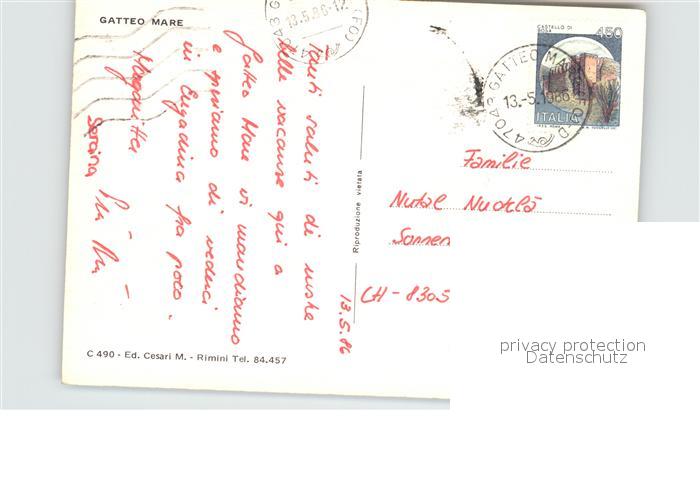 GATTEO MARE
13.5.86
Tanti saluti di nostre
belle vacanze qui a
Gatteo Mare vi mandiamo
e speriamo di vederci
in Engadina fra poco.
Margaritta
C 490 - Ed. Cesari M. - Rimini Tel. 84.457
Riproduzione vietata
CASTELLO DI
ROSA
450
ITALIA
47043 GATTEO MA
13.-5.1986
13.5.86-12
(FO)
47043
Familie
Nutal
CH-8305
privacy protection
Datenschutz